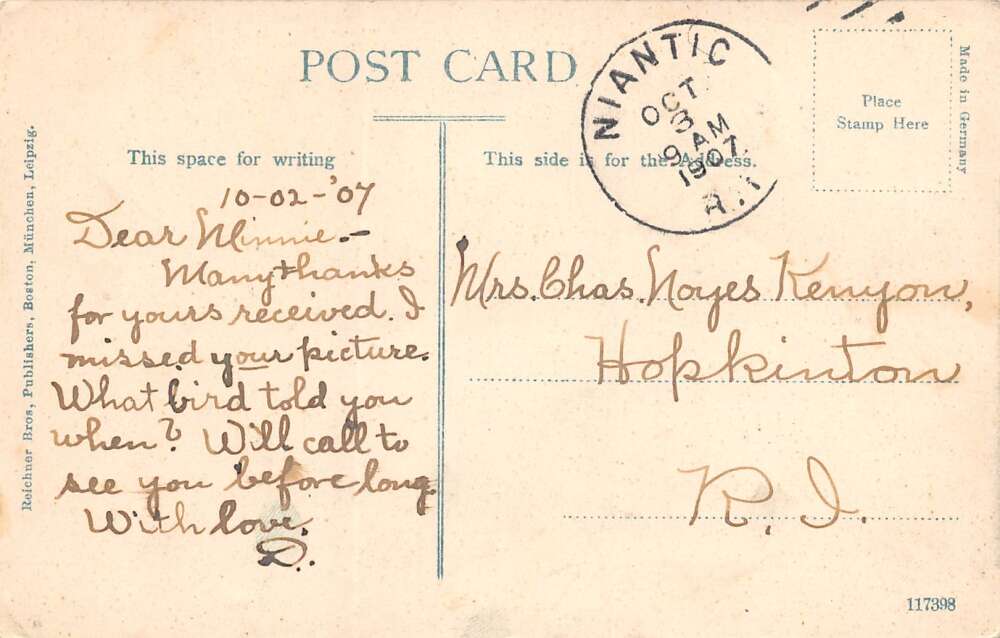 POST CARD
NIANTIC
OCT
3
9 AM
1907
R.I.
Place
Stamp Here
Made in Germany
This space for writing
This side is for the Address.
10-02-'07
Dear Minnie.-
Many thanks
for yours received. I
missed your picture.
What bird told you
when? Will call to
see you before long.
With love,
D.
Mrs. Chas. Noyes Kenyon,
Hopkinton
R. I.
Reichner Bros, Publishers, Boston, München, Leipzig.
117398